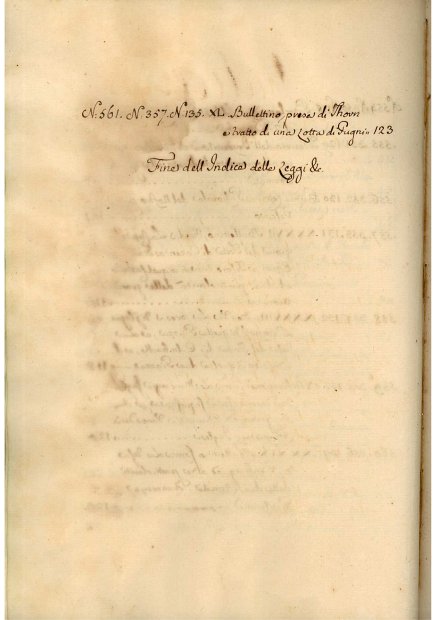 N. 561. N. 357. N. 135. XL. Bullettino, presa di Thorn
e ratto di una Lotta di Pugni. 123
Fine dell'Indice delle Leggi &c.